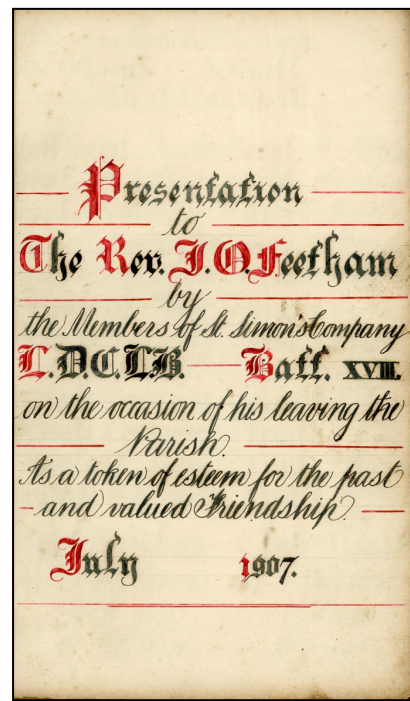 Presentation
to
The Rev. J. O. Feetham
by
the Members of St. Simon's Company
L.D.C.L.B. Batt. XVIII.
on the occasion of his leaving the
Parish.
As a token of esteem for the past
and valued Friendship.
July 1907.